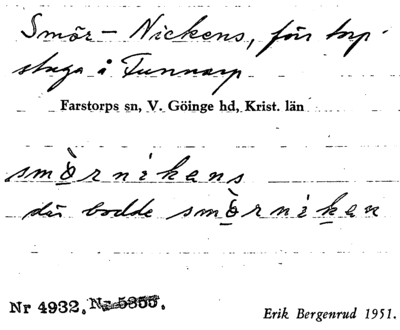 Smör-Nickens, förs torp-
stuga å Tunnarp
Farstorps sn, V. Göinge hd, Krist. län
smòrnikens
där bodde smòrniken
Nr 4932. Nr 5355.
Erik Bergenrud 1951.